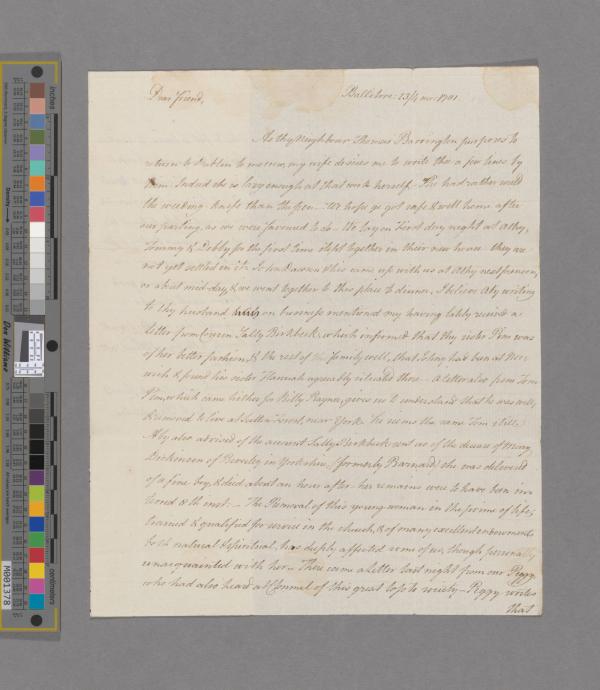 Dear friend,
Ballitore: 13/4 mo: 1791
As thy Neighbour Thomas Barrington purposes to
return to Dublin to morrow, my wife desires me to write thee a few lines by
him. Indeed she is lazy enough at that work herself. She had rather wield
the weeding-knife than the pen. We hope ye got safe & well home after
our parting, as we were favoured to do. We lay on First day night at Athy,
Tommy & Debby for the first time slept together in their new house. they are
not yet settled in it. came up with us at Athy next forenoon,
or about mid-day, & we went together to this place to dinner. I believe Aby writing
to thy husband on business mentioned my having lately received a
letter from Cousin Sally Birkbeck, which informed that thy sister was
of her better fashion, & the rest of the family well, that Johny had been at
& found his sister Hannah agreeably situated there. A letter also from Tom
which came hither for Billy Rayner, gives us to understand that he was well,
& removed to live at near York. he seems the same Tom still.
Aby also advised of the account Sally Birkbeck sent us of the decease of Mary
Dickinson of Beverley in Yorkshire, (formerly Barnard) she was delivered
of a fine boy, & died about an hour after. her remains were to have been in-
terred inst. The Removal of this young woman in the prime of life,
learned & qualified for service in the church, & of many excellent endowments
both natural & spiritual, has deeply affected some of us, though personally
unacquainted with her. There came a letter last night from our Peggy
who had also heard at of this great loss to society. Peggy writes
that
inches
centimeters
Density
Don Williams
M001378